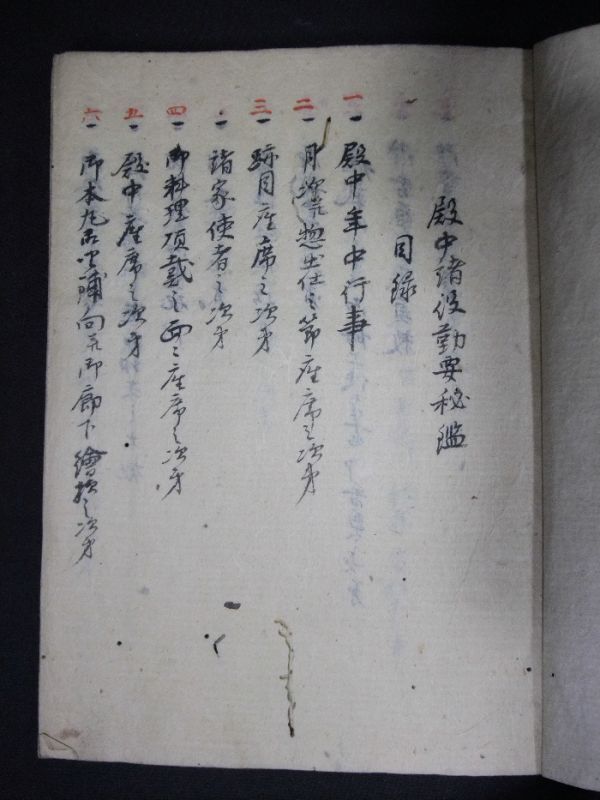 殿中諸役勤要秘鑑
目録
一 殿中年中行事
二 一 月次並惣出仕之節座席之次第
三 一 跡目座席之次第
一 諸家使者之次第
四 一 御料理頂戴之面々座席之次第
五 一 殿中座席之次第
六 一 御本丸 向 御廊下繪 之次第